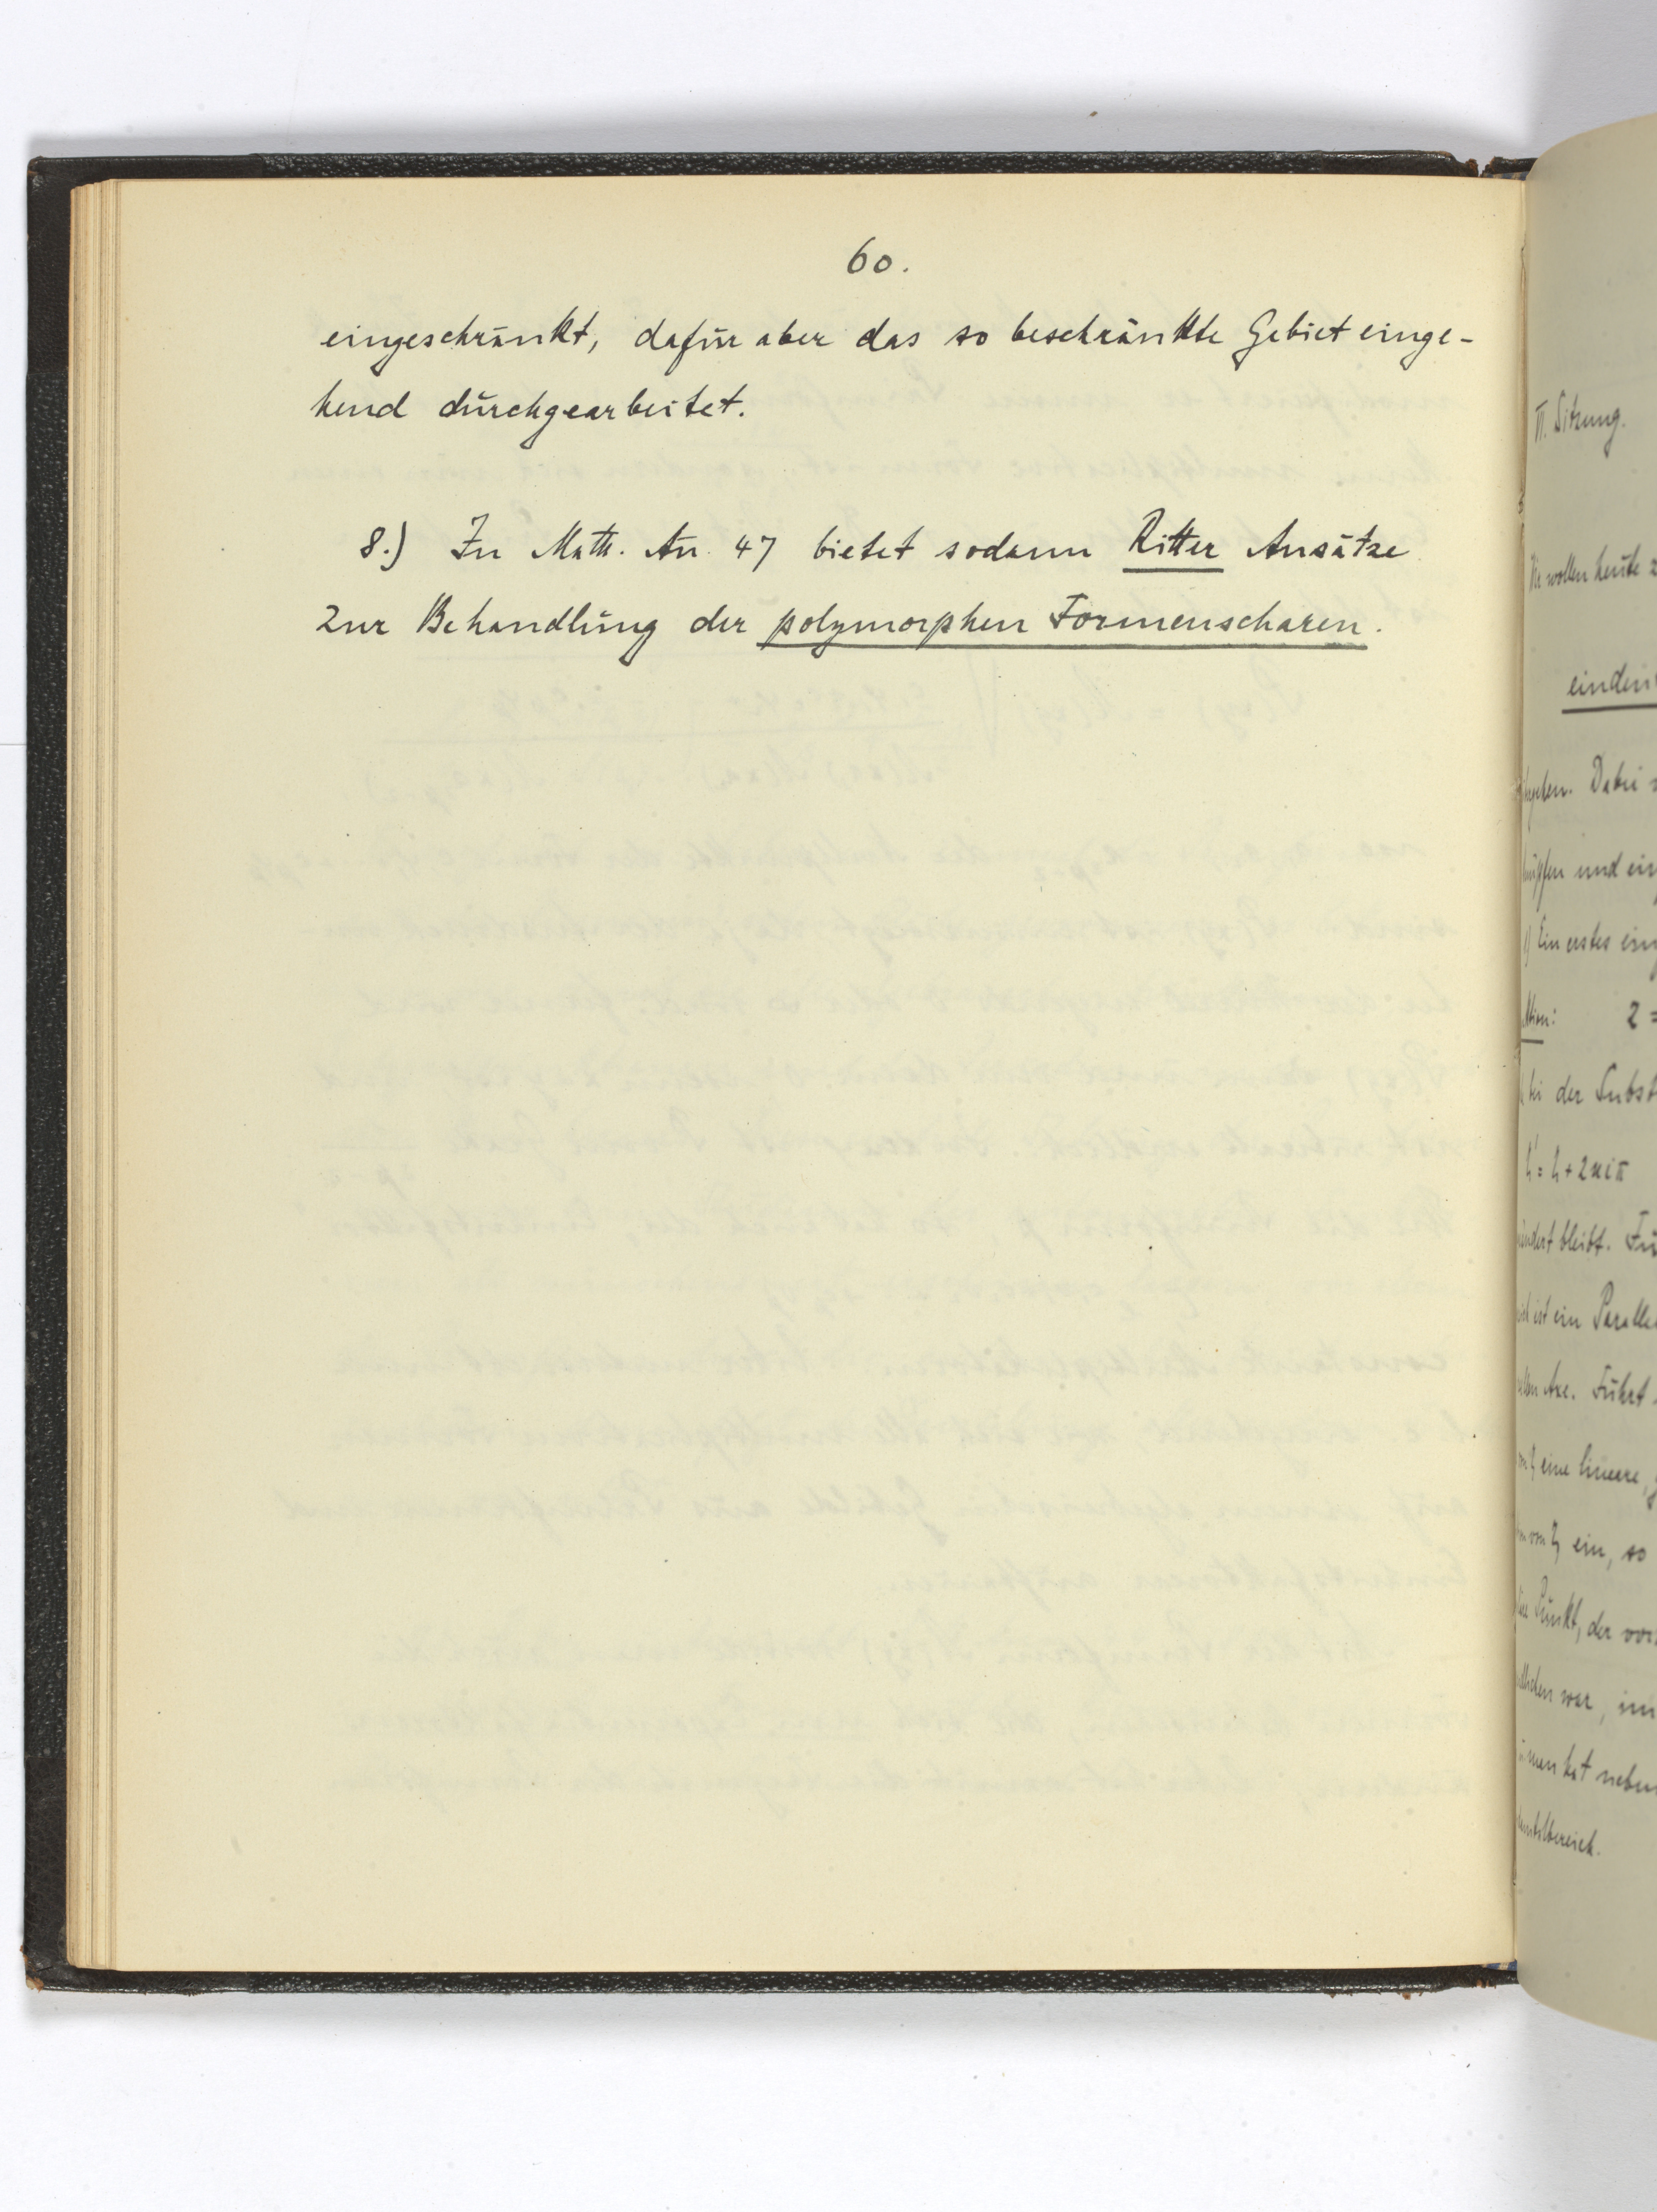 60.
eingeschränkt, dafür aber das so beschränkte Gebiet einge-
hend durchgearbeitet.
8.) In Math. An. 47 bietet sodann Ritter Ansätze
zur Behandlung der polymorphen Formenscharen.
II. Sitzung.
Wir wollen heute
eindeu
geben. Dabei
knüpfen und ein
1) Ein erstes ein
ktion: Z =
bei der Subst
η' = η + 2κiπ
ändert bleibt. Fü
ist ein Paralle
ellen Axe. Führt
von η eine lineare,
von η ein, so
Punkt, der vor
endlichen war, im
man hat neben
damentalbereich.